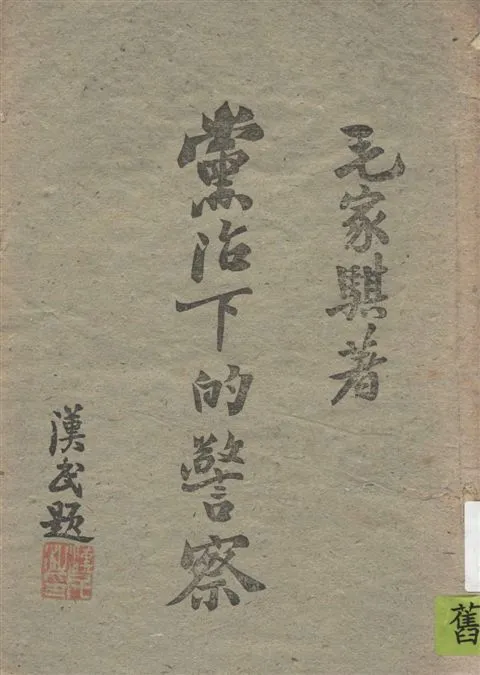 毛家騏著
黨治下的警察
漢民題
舊